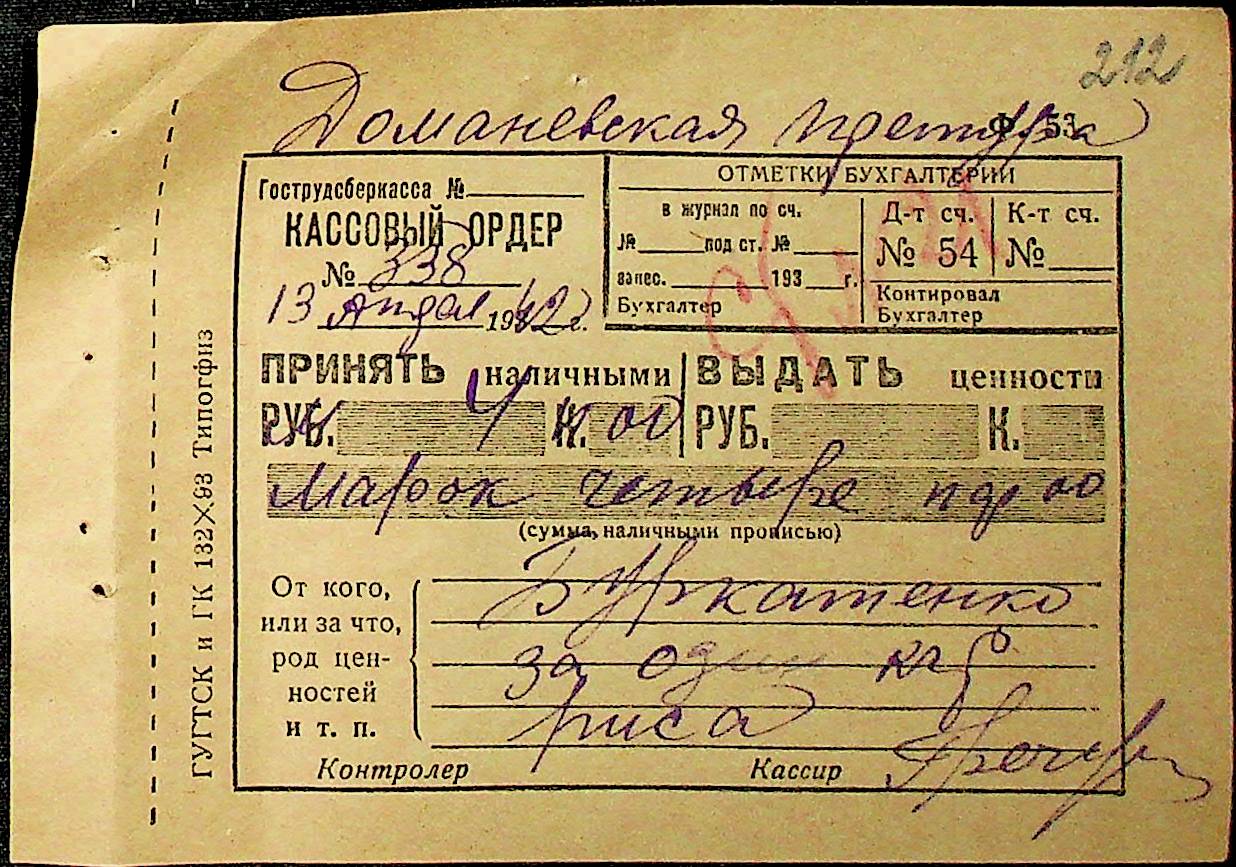 212
Доманевская претура
Ф. 53
Гострудсберкасса №
КАССОВЫЙ ОРДЕР
№ 338
13 апреля 1942 г.
ОТМЕТКИ БУХГАЛТЕРИИ
в журнал по сч.
№ под ст. №
занес. 193 г.
Бухгалтер
Д-т сч.
№ 54
К-т сч.
№
Контировал
Бухгалтер
ПРИНЯТЬ наличными
РУБ. 4 К. 00
ВЫДАТЬ ценности
РУБ. К.
Марок четыре 00
(сумма наличными прописью)
От кого,
или за что,
род цен-
ностей
и т. п.
Буркатенко
за один
риса
Контролер
Кассир
ГУГТСК и ГК 132×93 Типогфиз